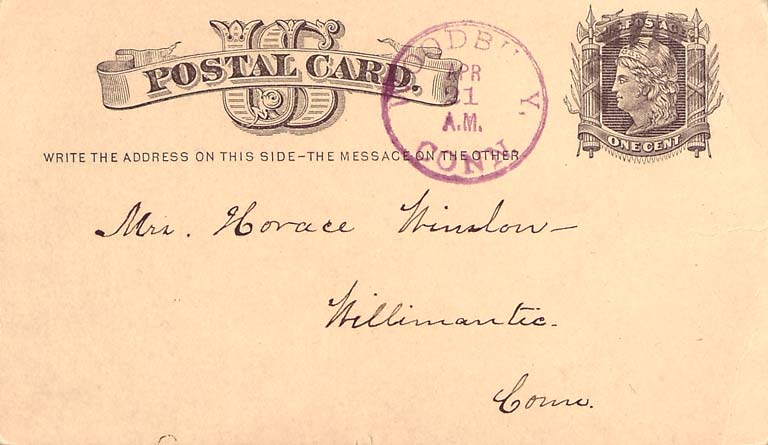 US
POSTAL CARD.
U.S. POSTAGE
ONE CENT
WOODBURY,
APR
21
A.M.
CONN.
WRITE THE ADDRESS ON THIS SIDE–THE MESSAGE ON THE OTHER
Mrs. Horace Winslow–
Willimantic.
Conn.